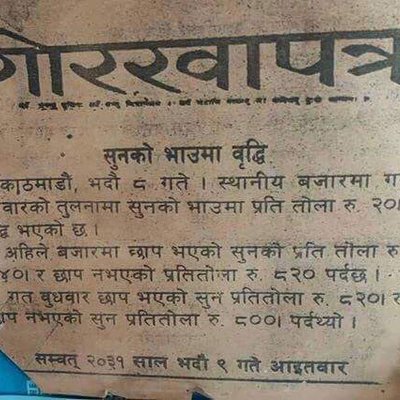 गोरखापत्र
सुनको भाउमा वृद्धि
काठमाडौं, भदौ ८ गते । स्थानीय बजारमा ग
वारको तुलनामा सुनको भाउमा प्रति तोला रु. २०।
द्धि भएको छ ।
अहिले बजारमा छाप भएको सुनको प्रति तोला रु.
४०। र छाप नभएको प्रतितोला रु. ८२० पर्दछ ।
गत बुधवार छाप भएको सुन प्रतितोला रु. ८२०। र
ाप नभएको सुन प्रतितोला रु. ८००। पर्दथ्यो ।
सम्वत् २०३१ साल भदौ ९ गते आइतवार